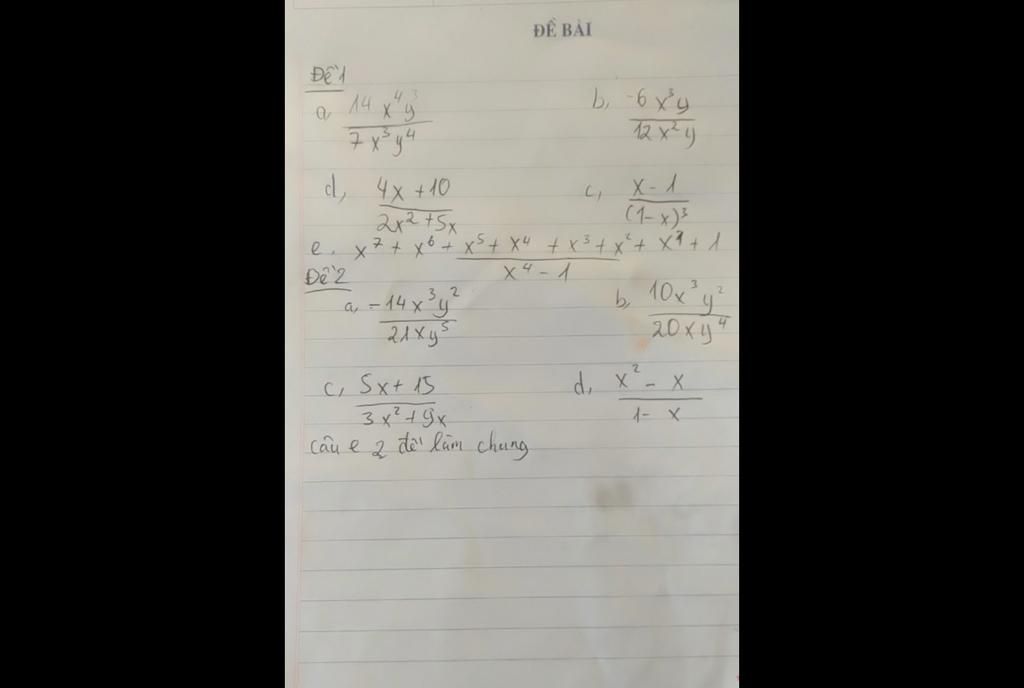 ĐỀ BÀI
Đề 1
a, 14x⁴y³ / 7x³y⁴
b, -6x³y / 12x²y
d, 4x + 10 / 2x² + 5x
c, x - 1 / (1 - x)³
e. x⁷ + x⁶ + x⁵ + x⁴ + x³ + x² + x¹ + 1 / x⁴ - 1
Đề 2
a, -14x³y² / 21xy⁵
b, 10x³y² / 20xy⁴
c, 5x + 15 / 3x² + 9x
d, x² - x / 1 - x
câu e 2 đề làm chung